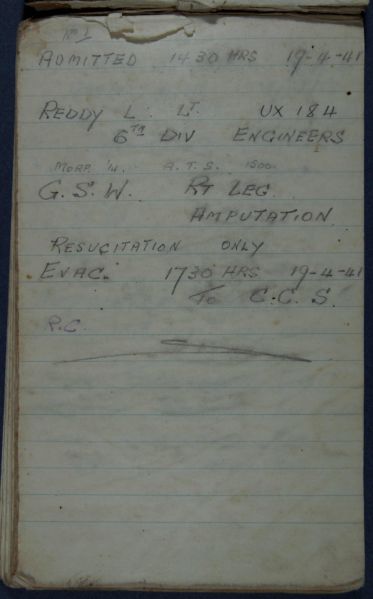 No 1
ADMITTED 1430 HRS 19-4-41
REDDY L. LT. UX 184
6TH DIV ENGINEERS
MORP. 1/4 A.T.S. 1500.
G.S.W. RT LEG
AMPUTATION
RESUCITATION ONLY
EVAC. 1730 HRS 19-4-41
TO C.C.S.
R.C.